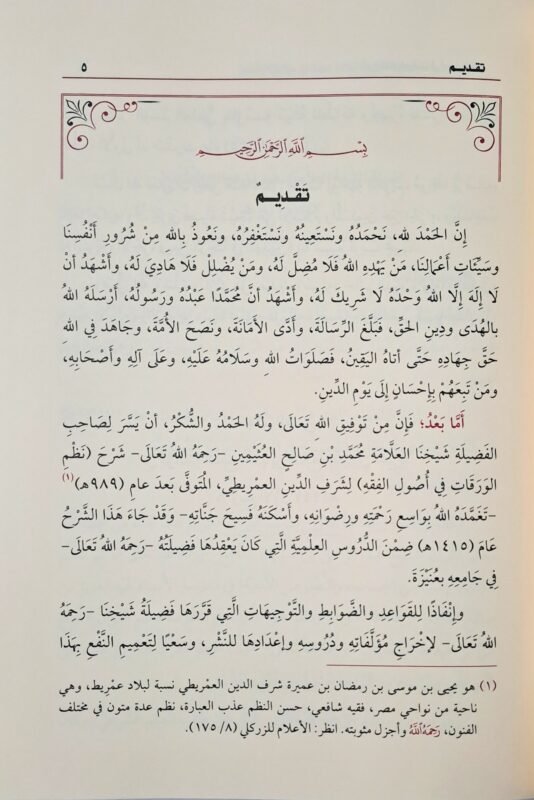 تقديم ٥
بِسْمِ ٱللَّهِ ٱلرَّحْمَٰنِ ٱلرَّحِيمِ
تَقْدِيمٌ
إِنَّ الحَمْدَ للهِ، نَحْمَدُهُ وَنَسْتَعِينُهُ وَنَسْتَغْفِرُهُ، وَنَعُوذُ بِاللهِ مِنْ شُرُورِ أَنْفُسِنَا
وسَيِّئَاتِ أَعْمَالِنَا، مَنْ يَهْدِهِ اللهُ فَلَا مُضِلَّ لَهُ، ومَنْ يُضْلِلْ فَلَا هَادِيَ لَهُ، وأَشْهَدُ أنْ
لَا إِلَهَ إِلَّا اللهُ وَحْدَهُ لَا شَرِيكَ لَهُ، وأَشْهَدُ أنَّ مُحَمَّدًا عَبْدُهُ وَرَسُولُهُ، أَرْسَلَهُ اللهُ
بالهُدَى ودِينِ الحَقِّ، فَبَلَّغَ الرِّسَالَةَ، وأَدَّى الأَمَانَةَ، ونَصَحَ الأُمَّةَ، وجَاهَدَ فِي اللهِ
حَقَّ جِهَادِهِ حَتَّى أتاهُ اليَقِينُ، فَصَلَوَاتُ اللهِ وسَلَامُهُ عَلَيْهِ، وعَلَى آلِهِ وأَصْحَابِهِ،
ومَنْ تَبِعَهُمْ بِإِحْسَانٍ إِلَى يَوْمِ الدِّينِ.
أَمَّا بَعْدُ؛ فَإِنَّ مِنْ تَوْفِيقِ اللهِ تَعَالَى، ولَهُ الحَمْدُ والشُّكْرُ، أنْ يَسَّرَ لِصَاحِبِ
الفَضِيلَةِ شَيْخِنَا العَلَّامَةِ مُحَمَّدِ بْنِ صَالِحٍ العُثَيْمِين -رَحِمَهُ اللهُ تَعَالَى- شَرْحَ (نَظْمِ
الوَرَقَاتِ فِي أُصُولِ الفِقْهِ) لِشَرَفِ الدِّينِ العمْرِيطِيِّ، المُتَوفَّى بَعدَ عامِ (٩٨٩هـ)(١)
-تَغَمَّدَهُ اللهُ بِوَاسِعِ رَحْمَتِهِ ورِضْوَانِهِ، وأَسْكَنَهُ فَسِيحَ جَنَّاتِهِ- وَقَدْ جَاءَ هَذَا الشَّرْحُ
عَامَ (١٤١٥هـ) ضِمْنَ الدُّرُوسِ العِلْمِيَّةِ الَّتِي كَانَ يَعْقِدُهَا فَضِيلَتُهُ -رَحِمَهُ اللهُ تَعَالَى-
فِي جَامِعِهِ بعُنَيْزَةَ.
وإِنْفَاذًا لِلقَوَاعِدِ والضَّوَابِطِ والتَّوْجِيهَاتِ الَّتِي قَرَّرَهَا فَضِيلَةُ شَيْخِنَا -رَحِمَهُ
اللهُ تَعَالَى- لإِخْرَاجِ مُؤَلَّفَاتِهِ ودُرُوسِهِ وإعْدَادِهَا للنَّشْرِ، وسَعْيًا لِتَعْمِيمِ النَّفْعِ بِهَذَا
(١) هو يحيى بن موسى بن رمضان بن عميرة شرف الدين العمريطي نسبة لبلاد عمْرِيط، وهي
ناحية من نواحي مصر، فقيه شافعي، حسن النظم عذب العبارة، نظم عدة متون في مختلف
الفنون، رَحِمَهُ اللَّهُ وأجزل مثوبته. انظر: الأعلام للزركلي (٨/ ١٧٥).